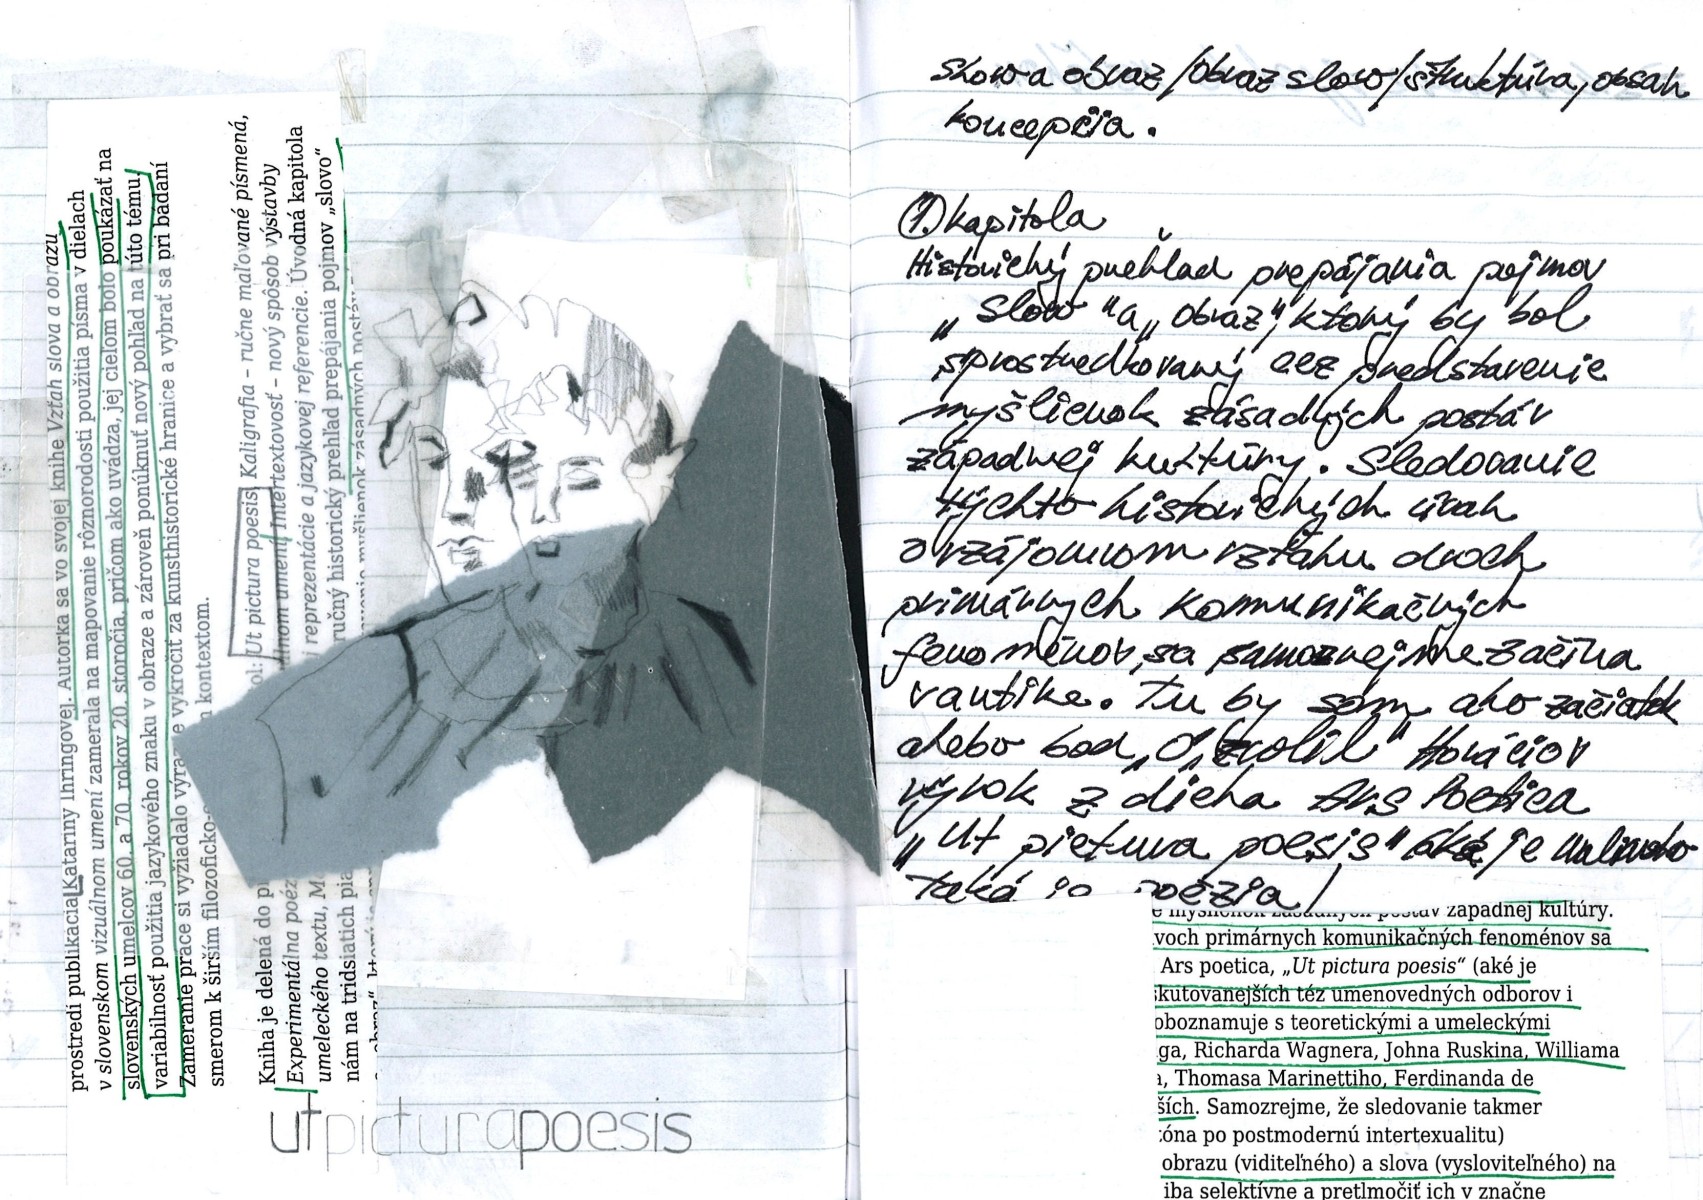 prostredí publikácia Kataríny Ihringovej. Autorka sa vo svojej knihe Vzťah slova a obrazu
v slovenskom vizuálnom umení zamerala na mapovanie rôznorodosti použitia písma v dielach
slovenských umelcov 60. a 70. rokov 20. storočia, pričom ako uvádza, jej cieľom bolo poukázať na
variabilnosť použitia jazykového znaku v obraze a zároveň ponúknuť nový pohľad na túto tému,
Zameranie práce si vyžiadalo výra e vykročiť za kunsthistorické hranice a vybrať sa pri bádaní
smerom k širším filozoficko- kontextom.
Kniha je delená do p ol: Ut pictura poesis, Kaligrafia – ručne maľované písmená,
Experimentálna poéz lnom umení, Intertextovosť – nový spôsob výstavby
umeleckého textu, M i reprezentácie a jazykovej referencie. Úvodná kapitola
nám na tridsiatich pia ručný historický prehľad prepájania pojmov „slovo“
myšlienok zásadných postáv
utpicturapoesis
slovo a obraz/obraz slovo/štruktúra, obsah
koncepcia.
1. kapitola
Historický prehľad prepájania pojmov
„slovo" a „obraz", ktorý by bol
sprostredkovaný cez predstavenie
myšlienok zásadných postáv
západnej kultúry. Sledovanie
týchto historických úvah
o vzájomnom vzťahu dvoch
primárnych komunikačných
fenoménov, sa samozrejme začína
v antike. Tu by som, ako začiatok
alebo bod „0" zvolil Horáciov
výrok z diela Ars Poetica
„Ut pictura poesis" aké je maliarstvo
taká je poézia/
e myšlienok zásadných postáv západnej kultúry.
voch primárnych komunikačných fenoménov sa
Ars poetica, „Ut pictura poesis“ (aké je
skutovanejších téz umenovedných odborov i
oboznamuje s teoretickými a umeleckými
ga, Richarda Wagnera, Johna Ruskina, Williama
a, Thomasa Marinettiho, Ferdinanda de
ších. Samozrejme, že sledovanie takmer
óna po postmodernú intertexualitu)
obrazu (viditeľného) a slova (vysloviteľného) na
iba selektívne a pretlmočiť ich v značne